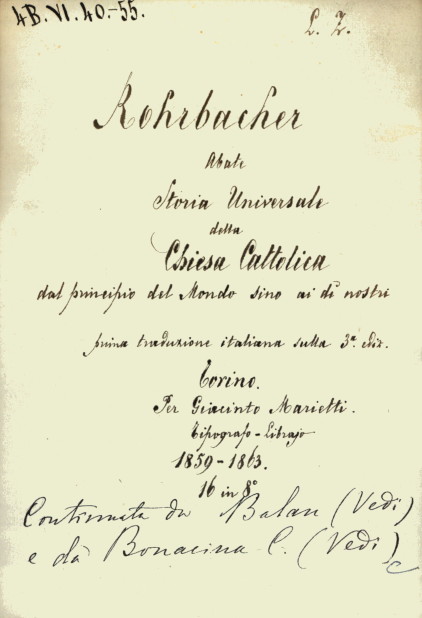 4B. VI. 40.-55.
L. Z.
Rohrbacher
Abate
Storia Universale
della
Chiesa Cattolica
dal principio del Mondo sino ai dì nostri
prima traduzione italiana sulla 3ª ediz.
Torino.
Per Giacinto Marietti.
Tipografo-Librajo
1859-1863.
16 in 8°
Continuata da Balan (Vedi)
e da Bonacina C. (Vedi)